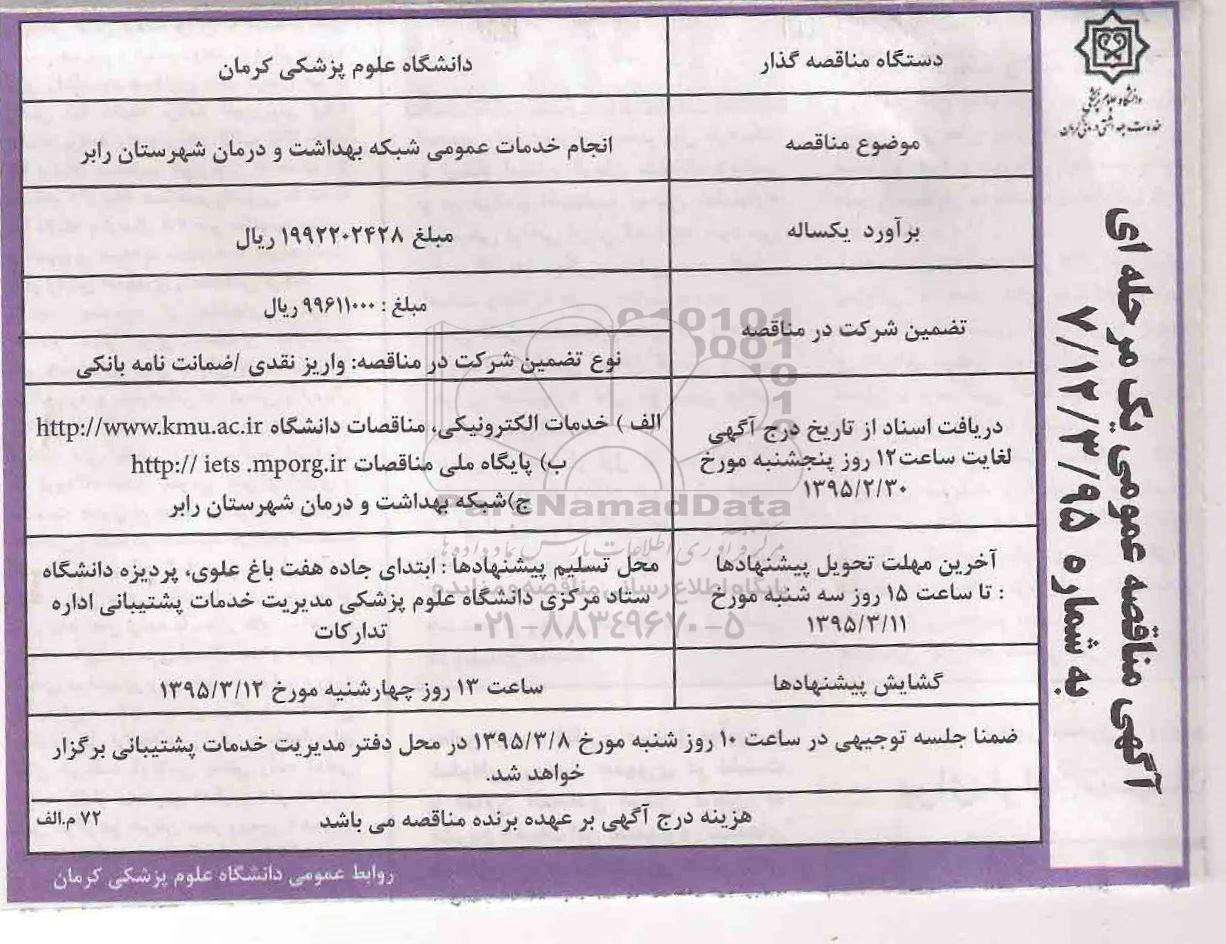 دانشگاه علوم پزشکی
خدمات بهداشتی درمانی کرمان
آگهی مناقصه عمومی یک مرحله ای
به شماره ۷/۱۲/۳/۹۵
دستگاه مناقصه گذار
دانشگاه علوم پزشکی کرمان
موضوع مناقصه
انجام خدمات عمومی شبکه بهداشت و درمان شهرستان رابر
برآورد یکساله
مبلغ ۱۹۹۲۲۰۲۴۲۸ ریال
تضمین شرکت در مناقصه
مبلغ : ۹۹۶۱۱۰۰۰ ریال
نوع تضمین شرکت در مناقصه: واریز نقدی /ضمانت نامه بانکی
دریافت اسناد از تاریخ درج آگهی
لغایت ساعت۱۲ روز پنجشنبه مورخ
۱۳۹۵/۲/۳۰
الف ) خدمات الکترونیکی، مناقصات دانشگاه http://www.kmu.ac.ir
ب) پایگاه ملی مناقصات http:// iets .mporg.ir
ج)شبکه بهداشت و درمان شهرستان رابر
آخرین مهلت تحویل پیشنهادها
: تا ساعت ۱۵ روز سه شنبه مورخ
۱۳۹۵/۳/۱۱
محل تسلیم پیشنهادها : ابتدای جاده هفت باغ علوی، پردیزه دانشگاه
ستاد مرکزی دانشگاه علوم پزشکی مدیریت خدمات پشتیبانی اداره
تدارکات
گشایش پیشنهادها
ساعت ۱۳ روز چهارشنبه مورخ ۱۳۹۵/۳/۱۲
ضمنا جلسه توجیهی در ساعت ۱۰ روز شنبه مورخ ۱۳۹۵/۳/۸ در محل دفتر مدیریت خدمات پشتیبانی برگزار
خواهد شد.
هزینه درج آگهی بر عهده برنده مناقصه می باشد
۷۲ م.الف
روابط عمومی دانشگاه علوم پزشکی کرمان
ParsNamadData
مرکز فرآوری اطلاعات پارس نماد داده ها
پایگاه اطلاع رسانی مناقصه و مزایده
۰۲۱-۸۸۳۴۹۶۷۰-۵